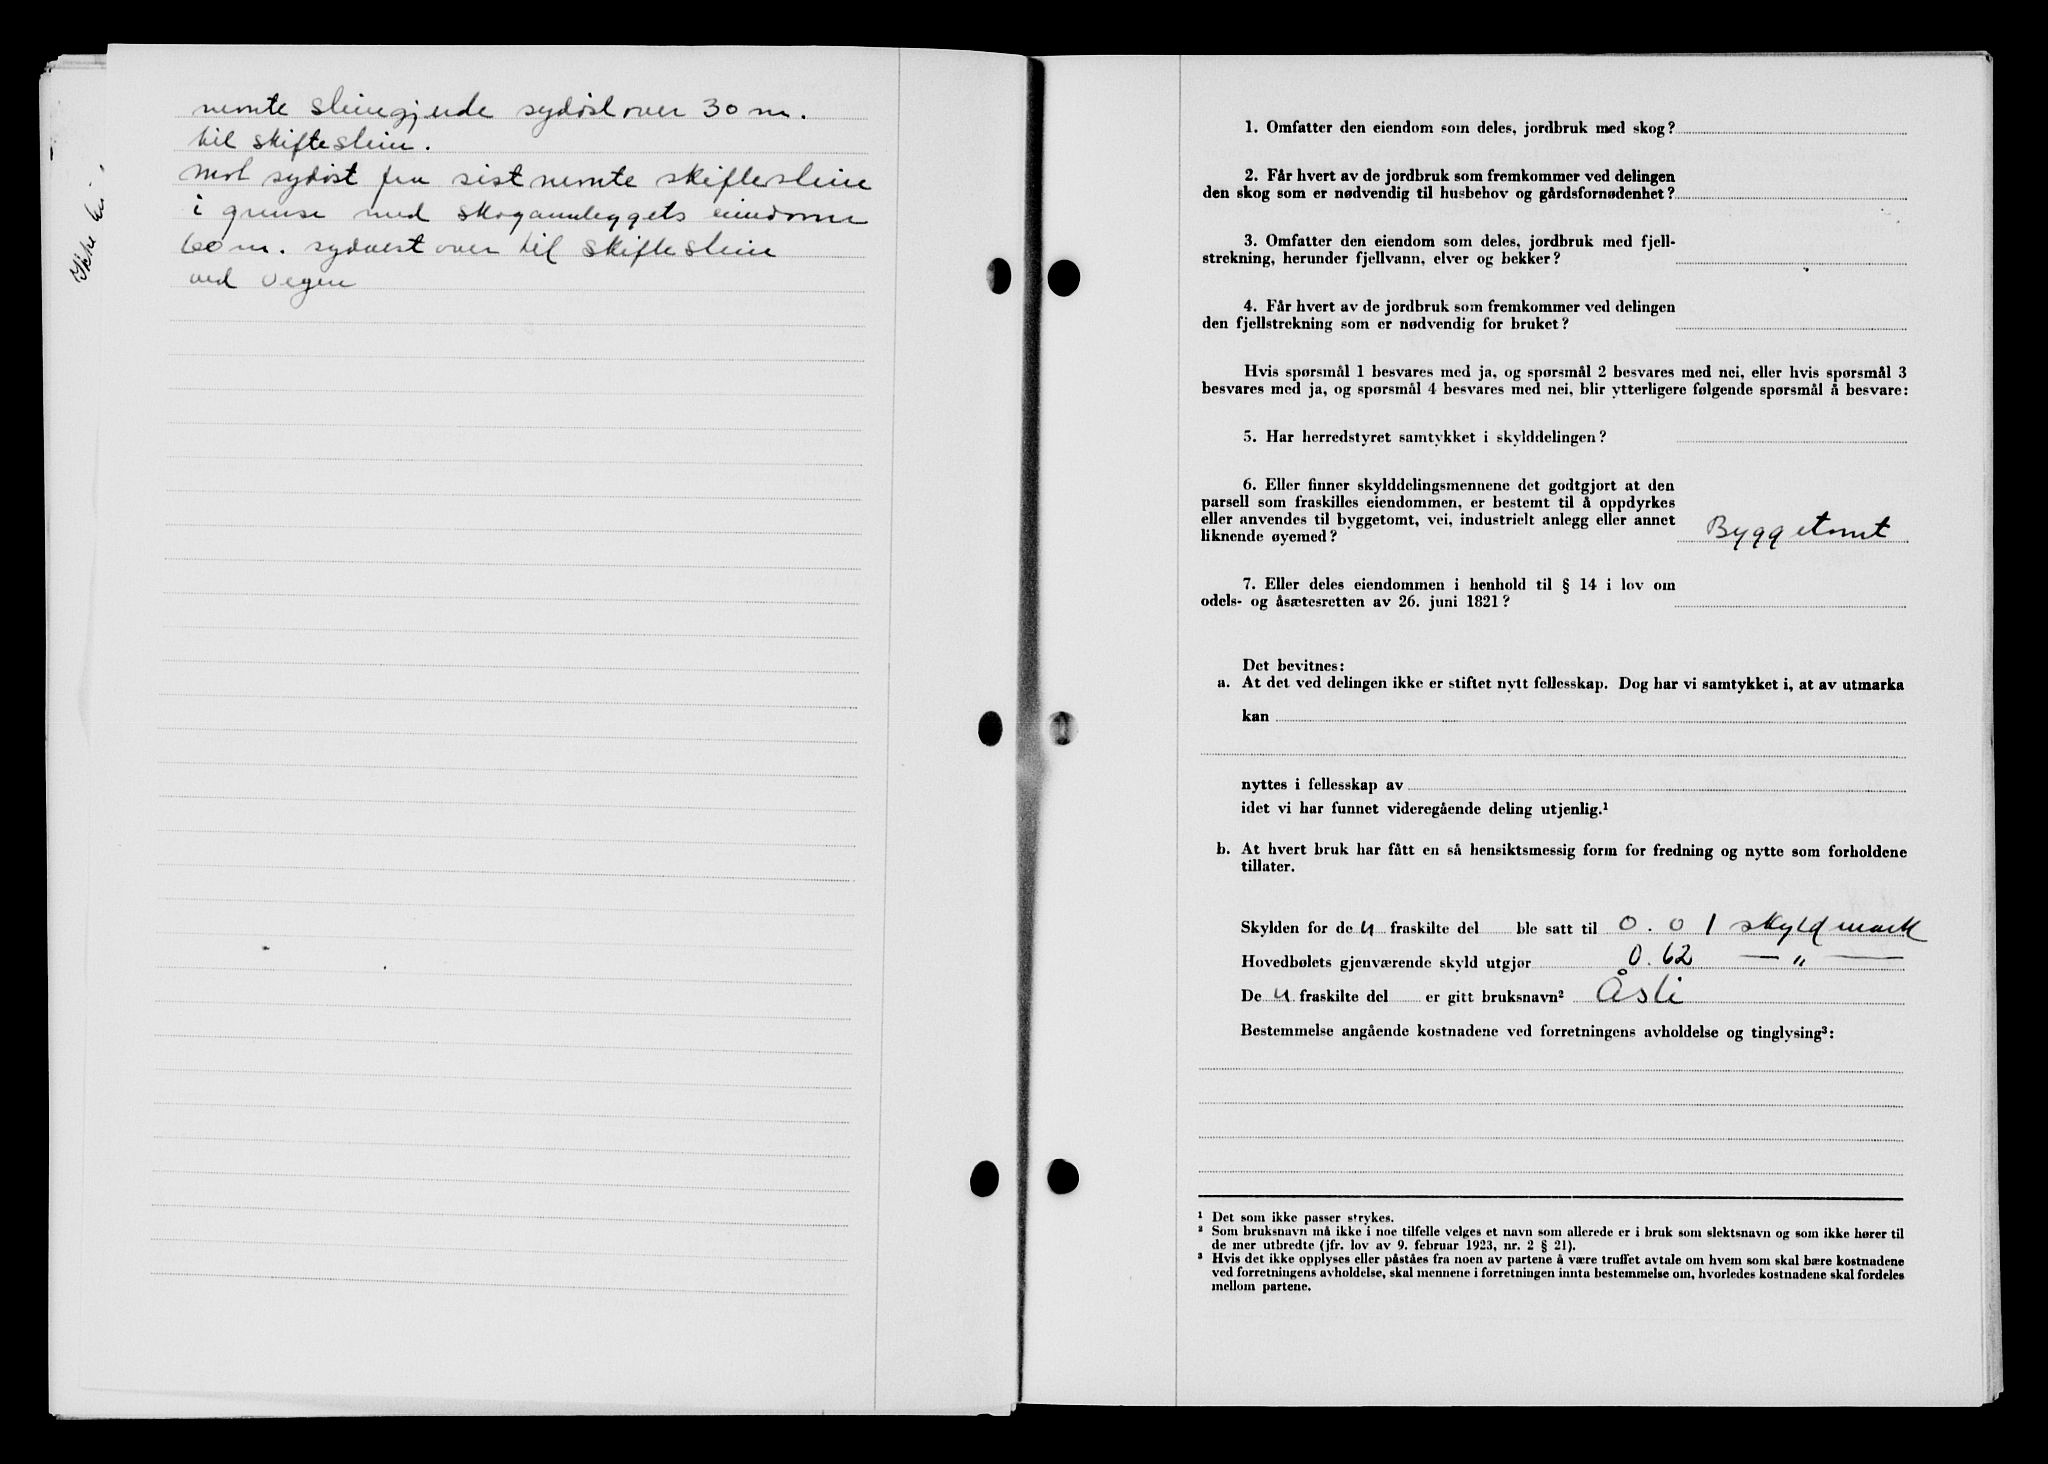 nemte steingjerde sydøst over 30 m.
til skiftestein.
Mot sydøst fra sist nemte skiftestein
i grense med skoganleggets eiendom
60 m. sydvest over til skiftestein
ved vegen
Ikke
1. Omfatter den eiendom som deles, jordbruk med skog?
2. Får hvert av de jordbruk som fremkommer ved delingen
den skog som er nødvendig til husbehov og gårdsfornødenhet?
3. Omfatter den eiendom som deles, jordbruk med fjell-
strekning, herunder fjellvann, elver og bekker?
4. Får hvert av de jordbruk som fremkommer ved delingen
den fjellstrekning som er nødvendig for bruket?
Hvis spørsmål 1 besvares med ja, og spørsmål 2 besvares med nei, eller hvis spørsmål 3
besvares med ja, og spørsmål 4 besvares med nei, blir ytterligere følgende spørsmål å besvare:
5. Har herredstyret samtykket i skylddelingen?
6. Eller finner skylddelingsmennene det godtgjort at den
parsell som fraskilles eiendommen, er bestemt til å oppdyrkes
eller anvendes til byggetomt, vei, industrielt anlegg eller annet
liknende øyemed? Byggetomt
7. Eller deles eiendommen i henhold til § 14 i lov om
odels- og åsætesretten av 26. juni 1821?
Det bevitnes:
a. At det ved delingen ikke er stiftet nytt fellesskap. Dog har vi samtykket i, at av utmarka
kan
nyttes i fellesskap av
idet vi har funnet videregående deling utjenlig.¹
b. At hvert bruk har fått en så hensiktsmessig form for fredning og nytte som forholdene
tillater.
Skylden for den fraskilte del ble satt til 0.01 skyldmark
Hovedbølets gjenværende skyld utgjør 0.62 — „ —
Den fraskilte del er gitt bruksnavn² Åsli
Bestemmelse angående kostnadene ved forretningens avholdelse og tinglysing³:
¹ Det som ikke passer strykes.
² Som bruksnavn må ikke i noe tilfelle velges et navn som allerede er i bruk som slektsnavn og som ikke hører til
de mer utbredte (jfr. lov av 9. februar 1923, nr. 2 § 21).
³ Hvis det ikke opplyses eller påståes fra noen av partene å være truffet avtale om hvem som skal bære kostnadene
ved forretningens avholdelse, skal mennene i forretningen innta bestemmelse om, hvorledes kostnadene skal fordeles
mellom partene.